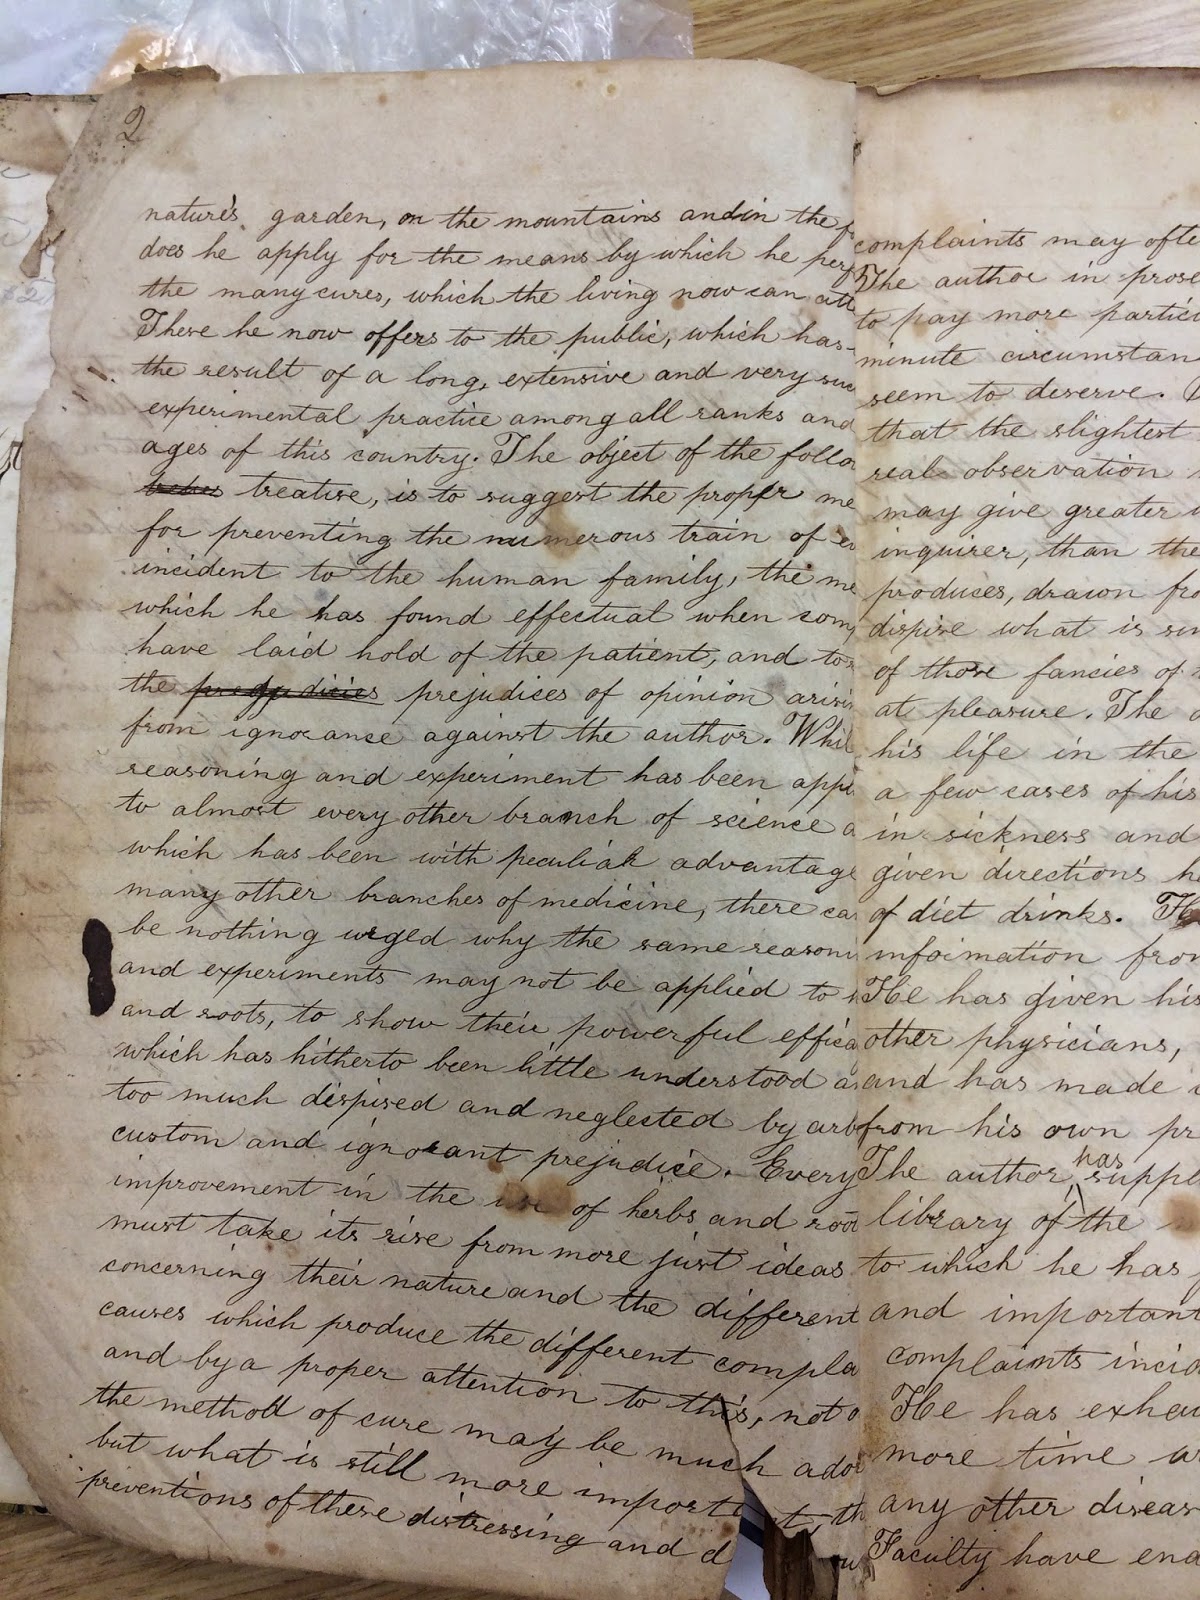 2
nature's garden, on the mountains and in the
does he apply for the means by which he
the many cures, which the living now can
There he now offers to the public, which has
the result of a long, extensive and very
experimental practice among all ranks and
ages of this country. The object of the
treatise, is to suggest the proper
for preventing the numerous train of
incident to the human family, the
which he has found effectual when
have laid hold of the patient, and to
the prejudices of opinion
from ignorance against the author.
reasoning and experiment has been
to almost every other branch of science
which has been with peculiar advantage
many other branches of medicine, there
be nothing urged why the same
and experiments may not be applied to
and roots, to show their powerful
which has hitherto been little understood
too much dispised and neglected by
custom and ignorant prejudice. Every
improvement in the use of herbs and
must take its rise from more just ideas
concerning their nature and the different
causes which produce the different
and by a proper attention to this, not
the method of cure may be much
but what is still more
preventions of these distressing and
complaints may
The author in
to pay more
minute
seem to deserve.
that the slightest
real observation
may give greater
inquirer, than the
produces, drawn
dispise what is
of those fancies of
at pleasure. The
his life in the
a few cases of his
in sickness and
given directions
of diet drinks.
information
He has given his
other physicians,
and has made
from his own
The author has
library of the
to which he has
and important
complaints
He has
more time
any other
Faculty have